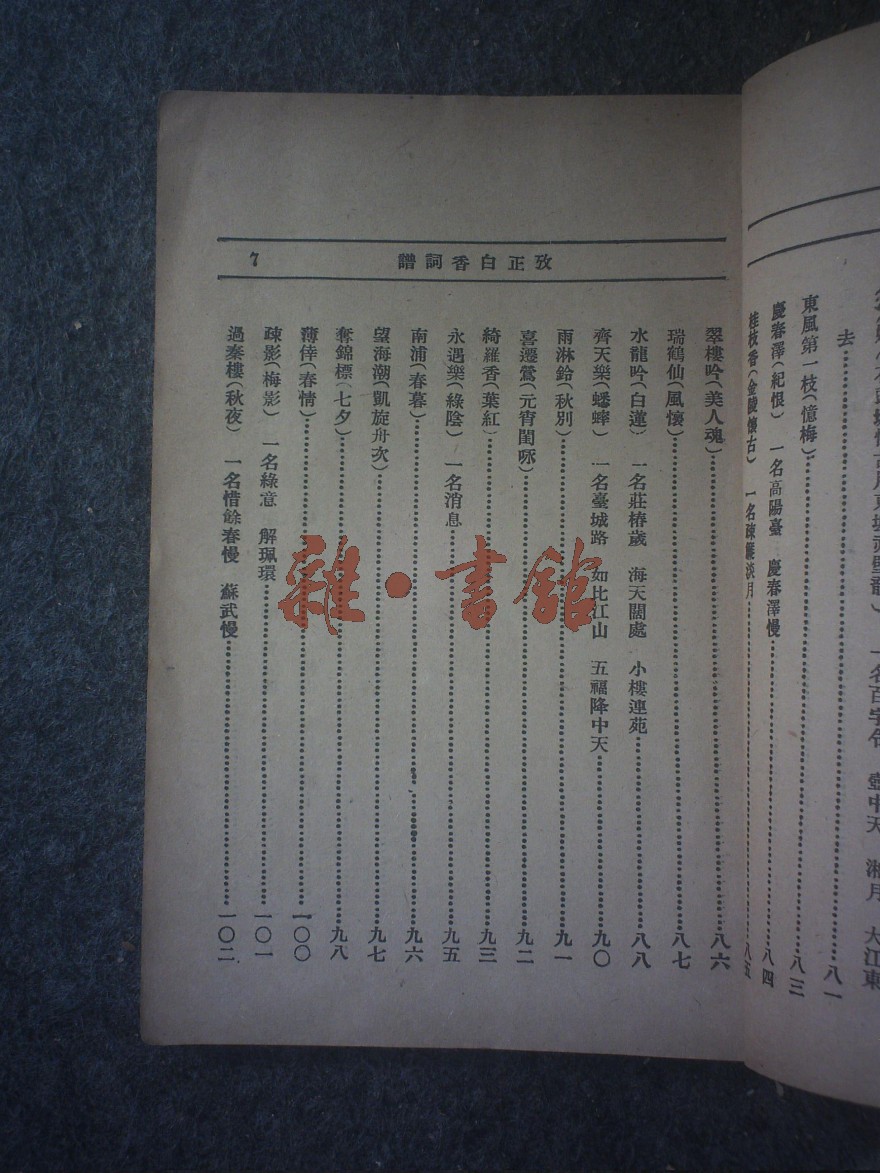 去……八一
東風第一枝(憶梅)……八三
慶春澤(紀恨) 一名高陽臺 慶春澤慢……八四
桂枝香(金陵懷古) 一名疎簾淡月……八五
7 攷正白香詞譜
翠樓吟(美人魂)……八六
瑞鶴仙(風懷)……八七
水龍吟(白蓮) 一名莊椿歲 海天闊處 小樓連苑……八八
齊天樂(蟋蟀) 一名臺城路 如比江山 五福降中天……九〇
雨淋鈴(秋別)……九一
喜遷鶯(元宵閨咏)……九二
綺羅香(葉紅)……九三
永遇樂(綠陰) 一名消息……九五
南浦(春暮)……九六
望海潮(凱旋舟次)……九七
奪錦標(七夕)……九八
薄倖(春情)……一〇〇
疎影(梅影) 一名綠意 解珮環……一〇一
過秦樓(秋夜) 一名惜餘春慢 蘇武慢……一〇二
雜·書館